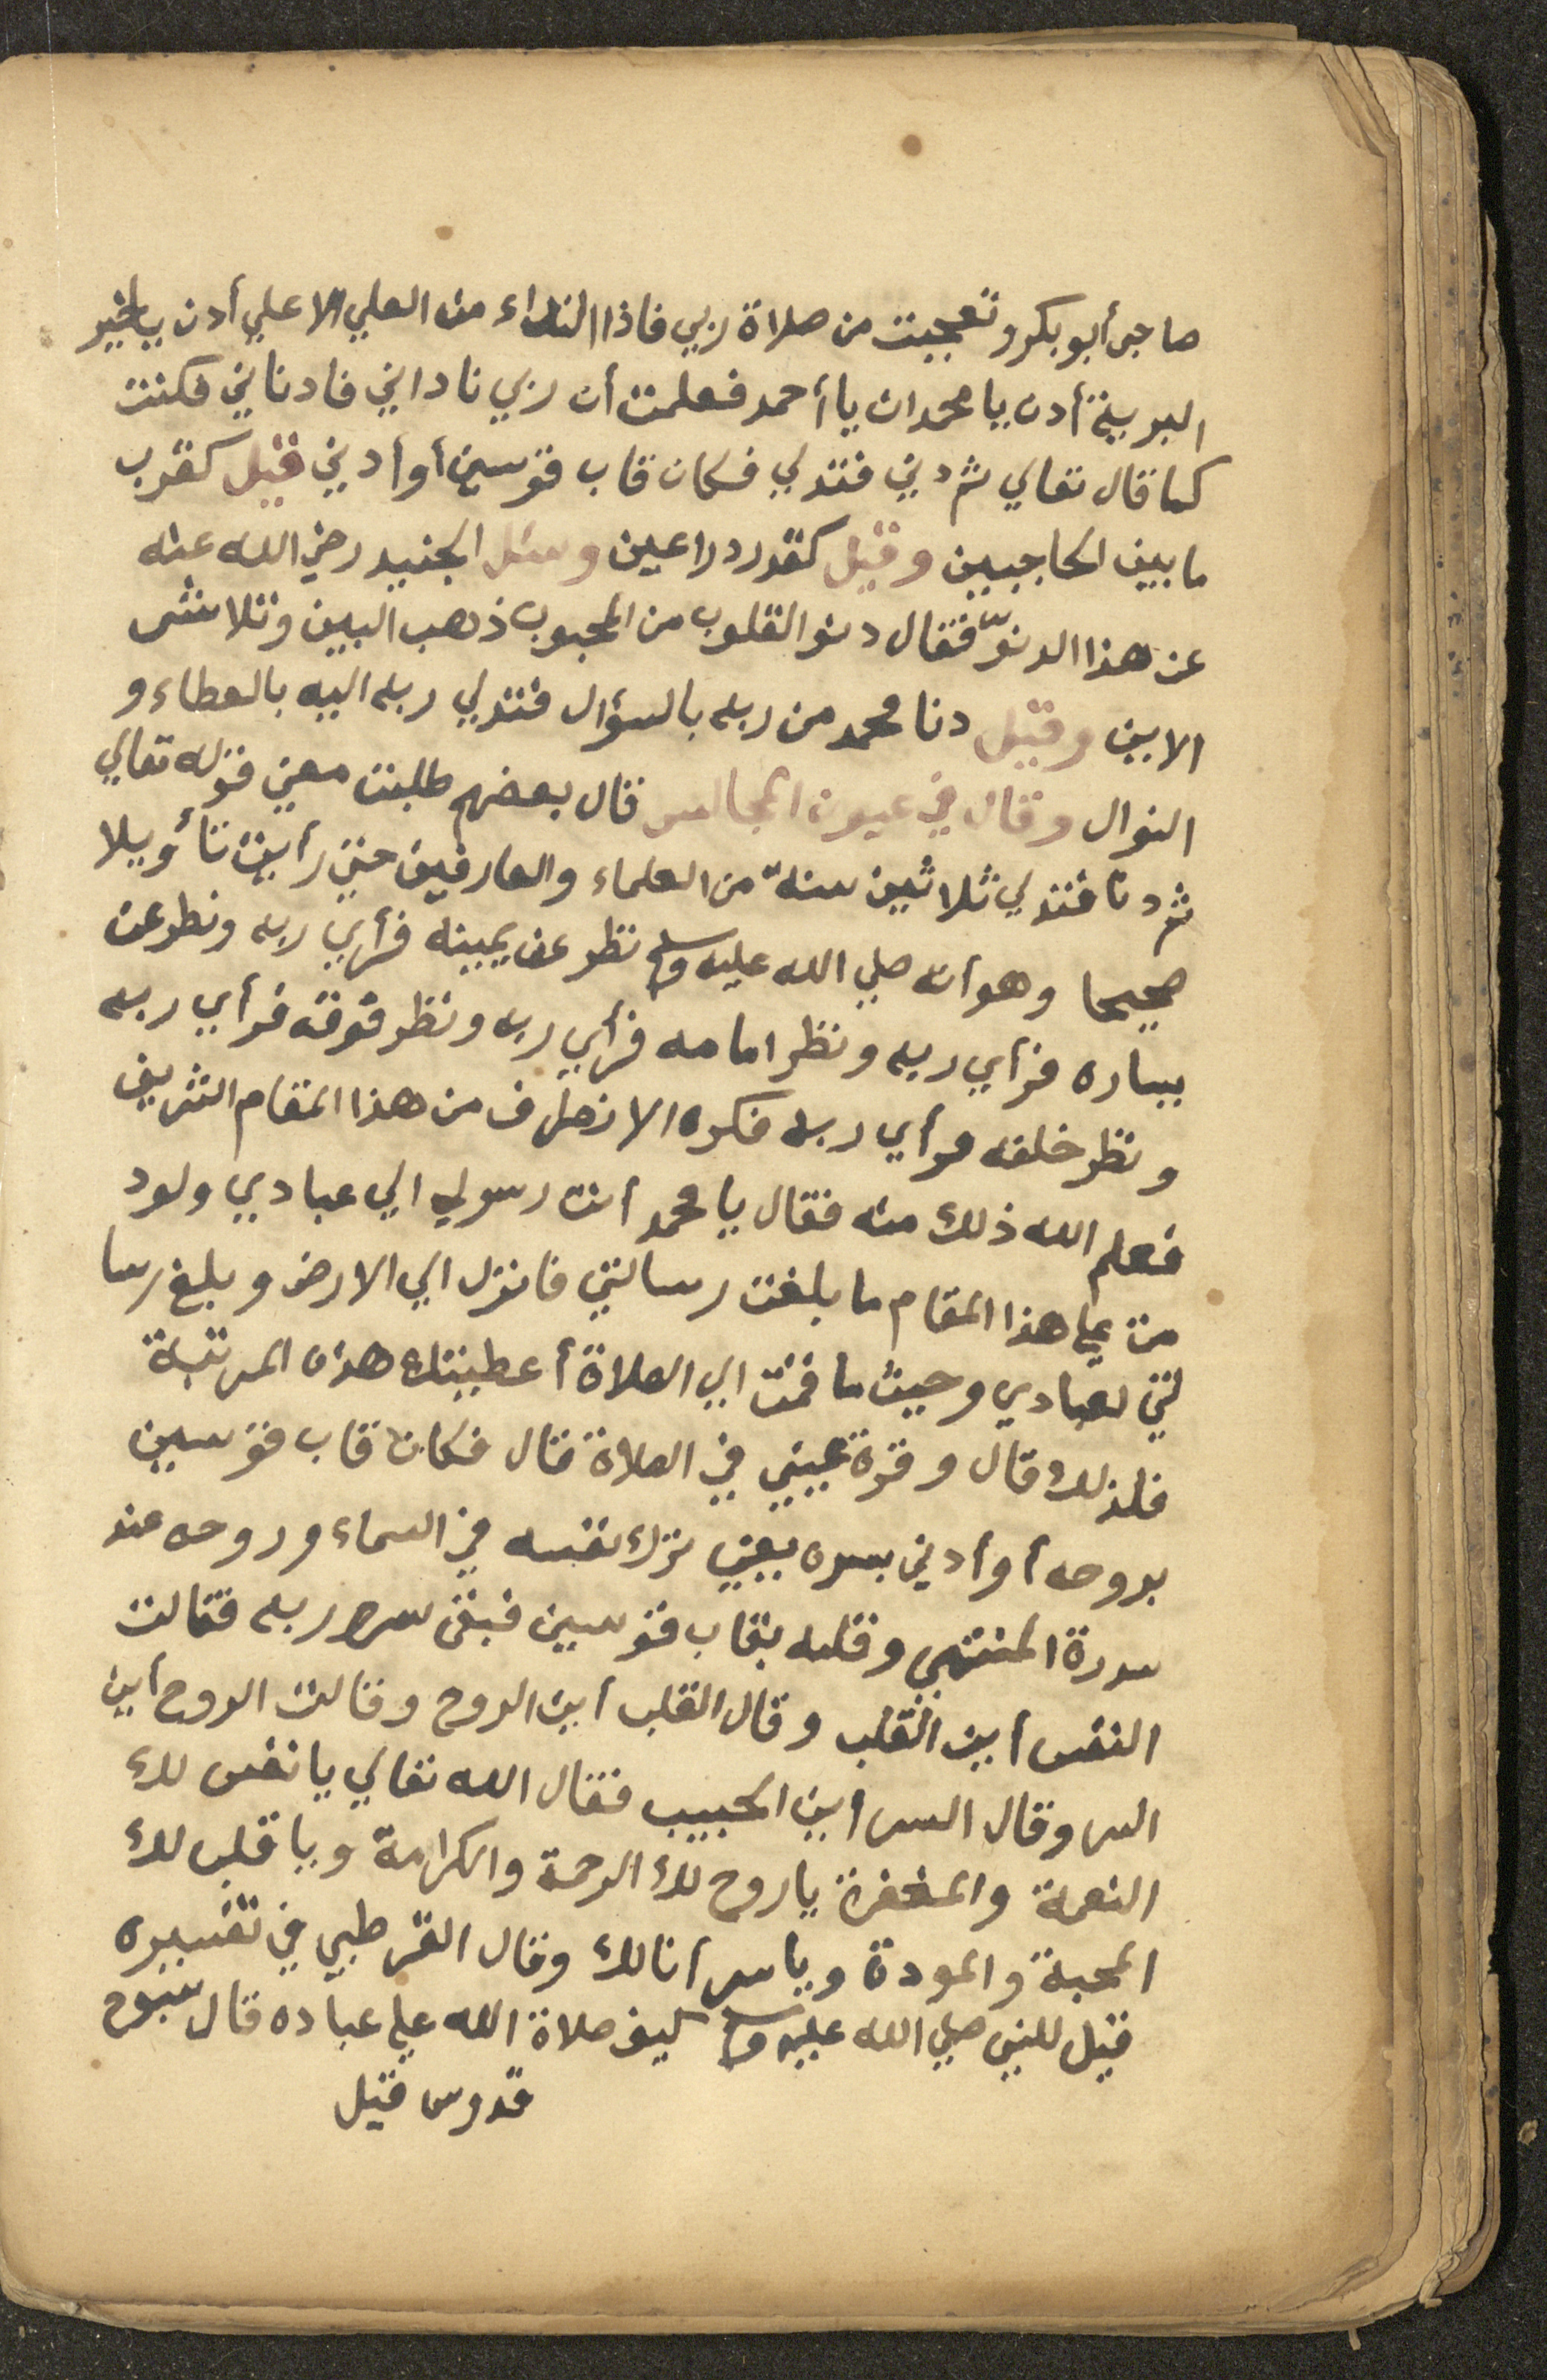 صاحبى أبو بكر وتعجبت من صلاة ربي فاذا النداء من العلي الاعلي أدن يا خير
البرية أدن يا محمد ادن يا أحمد فعلمت أن ربي ناداني فادناني فكنت
كما قال تعالي ثم دني فتدلي فكان قاب قوسين أو أدني قيل كقرب
ما بين الحاجبين وقيل كقدر دراعين وسئل الجنيد رضي الله عنه
عن هذا الدنوّ فقال دنو القلوب من المحبوب ذهب البين وتلاشى
الابين وقيل دنا محمد من ربه بالسؤال فتدلي ربه اليه بالعطاء و
النوال وقال في عيون المجالس قال بعضهم طلبت معني قوله تعالي
ثم دنا فتدلي ثلاثين سنة من العلماء والعارفين حتي رأيت تأويلا
صحيحا وهو أنه صلي الله عليه وسلم نظر عن يمينه فرأي ربه ونظر عن
يساره فرأي ربه ونظر امامه فرأي ربه ونظر فوقه فرأي ربه
ونظر خلفه فرأي ربه فكره الانصراف من هذا المقام الشريف
فعلم الله ذلك منه فقال يا محمد أنت رسولي الي عبادي ولود
مت علي هذا المقام ما بلغت رسالتي فانزل الي الارض وبلغ رسا
لتي لعبادي وحيث ما قمت الي الصلاة أعطيتك هذه المرتبة
فلذلك قال وقرة عيني في الصلاة قال فكان قاب قوسين
بروحه أو أدني بسره يعني ترك نفسه في السماء وروحه عند
سدرة المنتهي وقلبه بقاب قوسين فبقى سره وربه فقالت
النفس أين القلب وقال القلب أين الروح وقالت الروح أين
السر وقال السر أين الحبيب فقال الله تعالي يا نفس لك
النعمة والمغفرة يا روح لك الرحمة والكرامة ويا قلب لك
المحبة والمودة ويا سر أنا لك وقال القرطبي في تفسيره
قيل للنبي صلي الله عليه وسلم كيف صلاة الله علي عباده قال سبوح
قدوس قيل